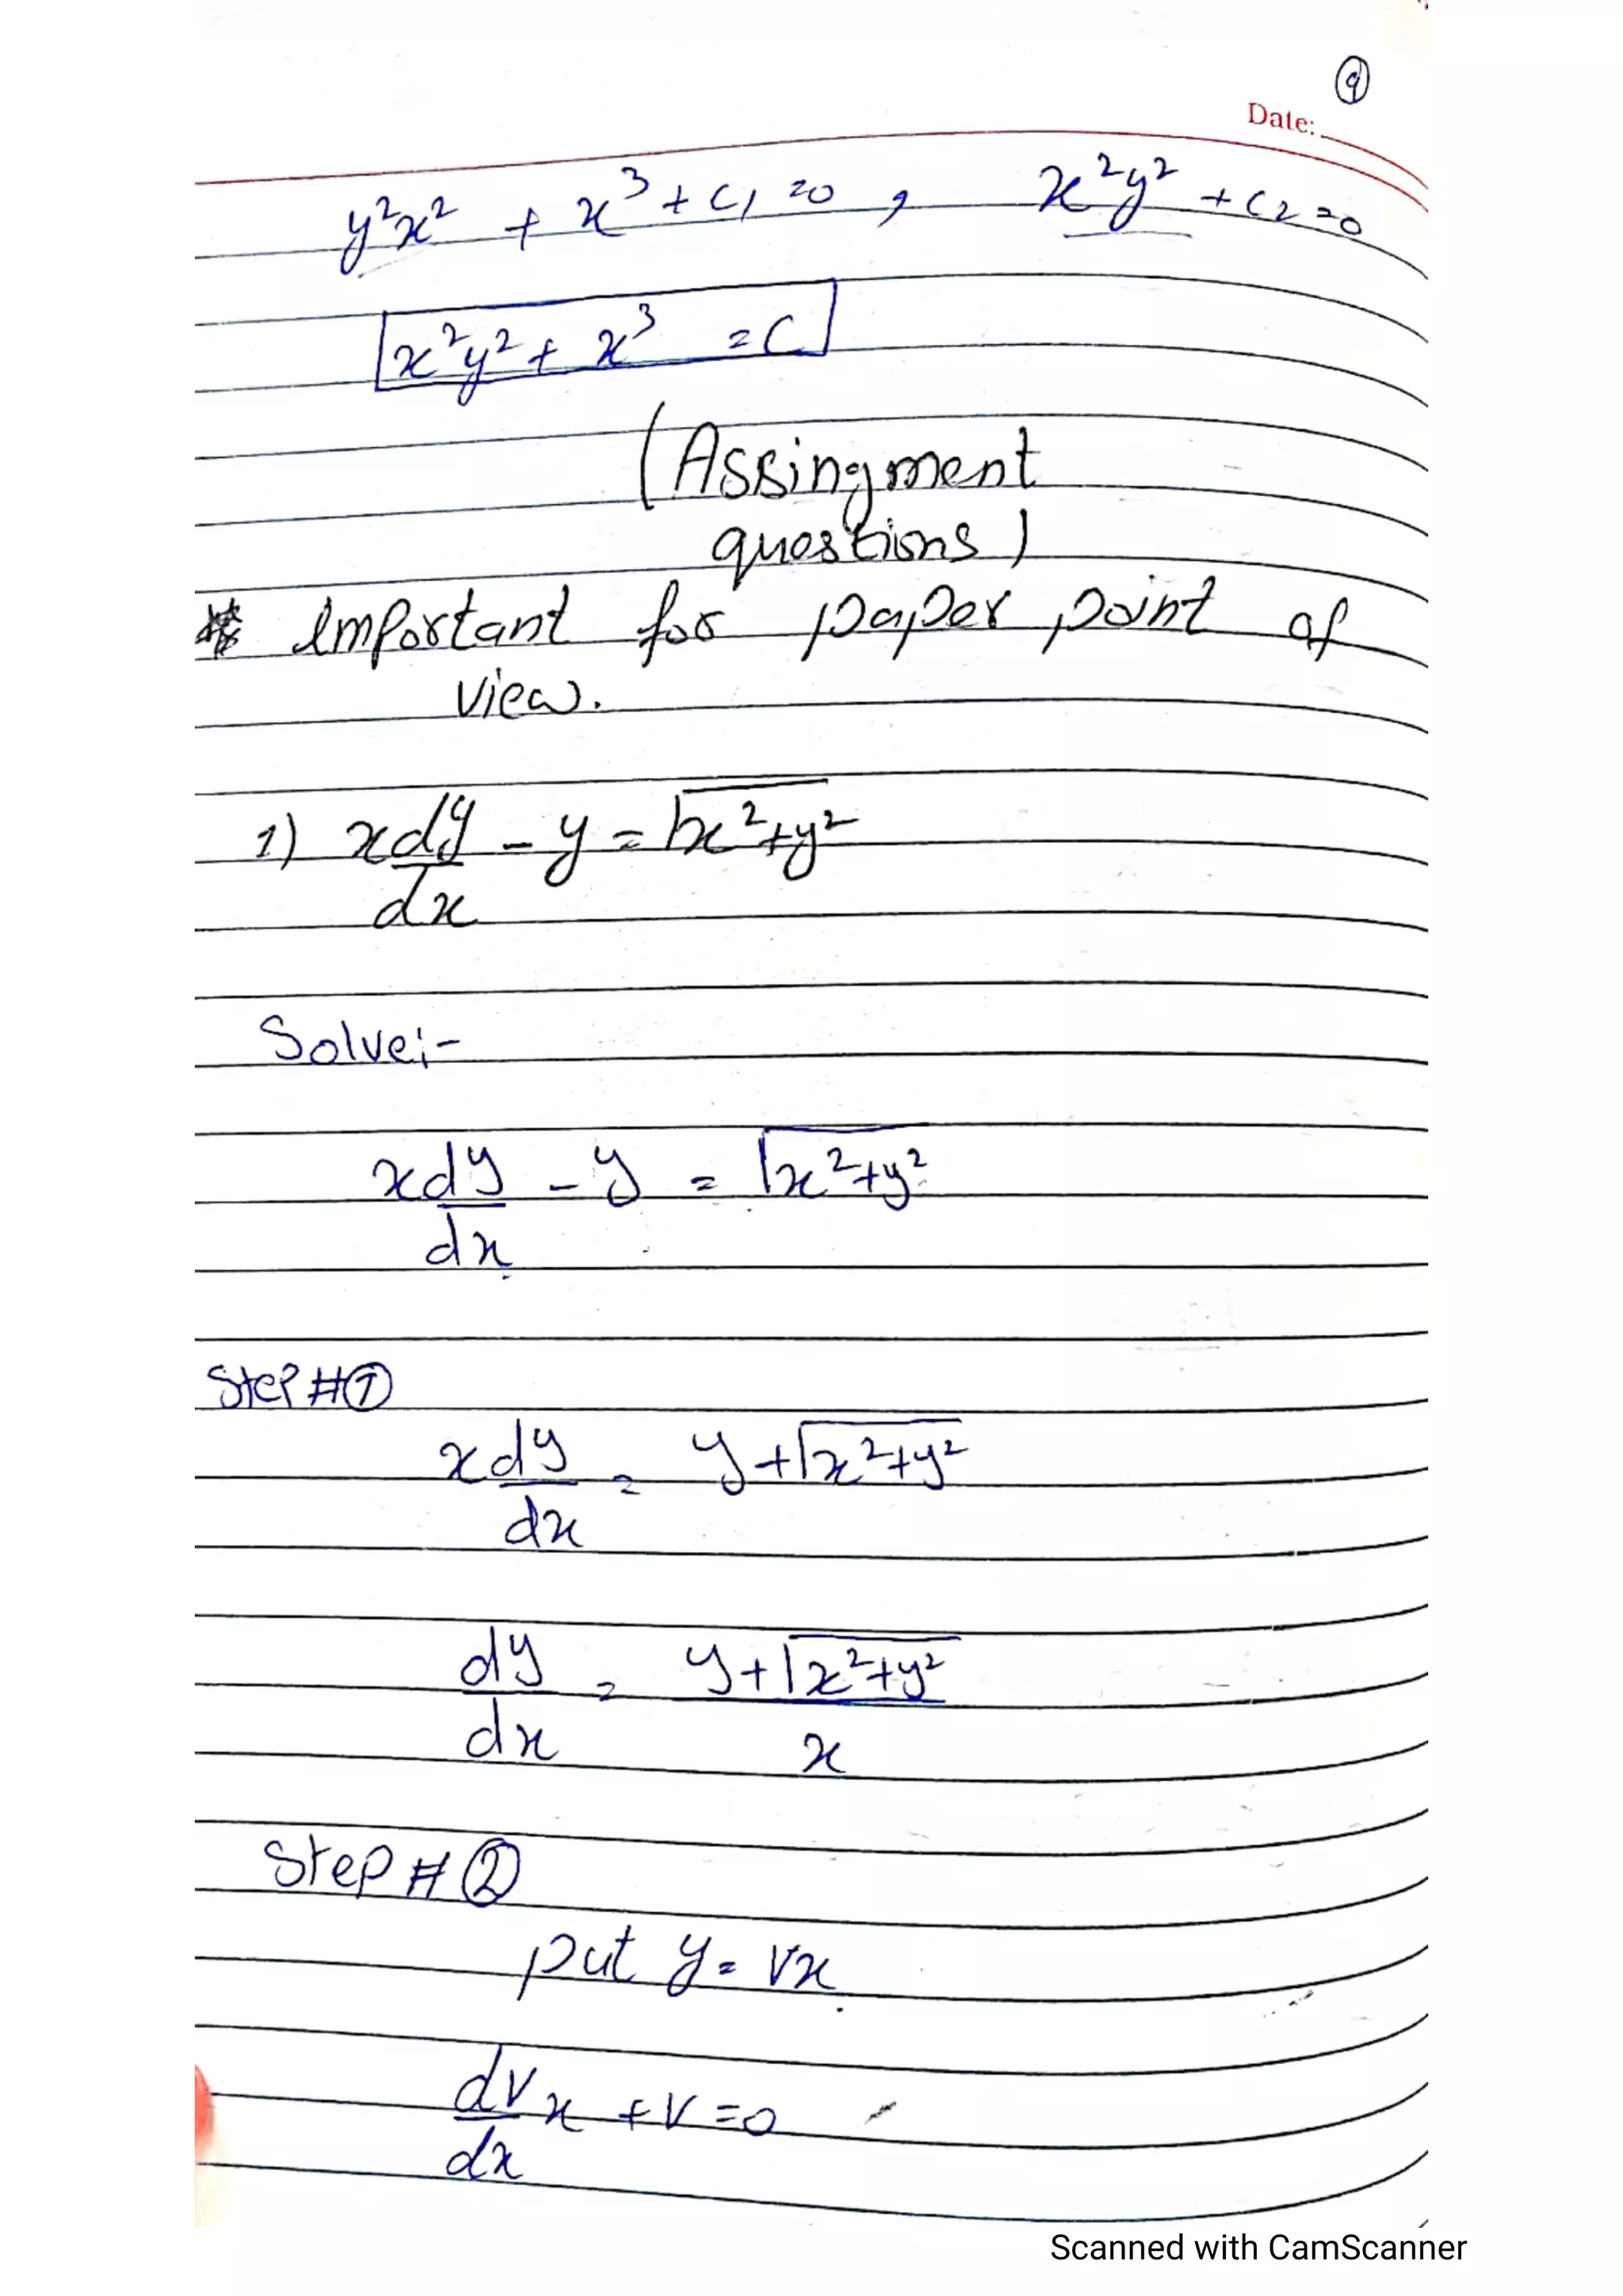 9
Date:
y²x² + x³ + c₁ = 0 , x²y² + c₂ = 0
x²y² + x³ = C
(Assingment
questions)
* Important for paper point of
view.
1) x dy/dx - y = √x²+y²
Solve:-
x dy/dx - y = √x²+y²
Step #①
x dy/dx = y + √x²+y²
dy/dx = y + √x²+y² / x
Step # ②
put y = vx
dv/dx x + v = 0
Scanned with CamScanner